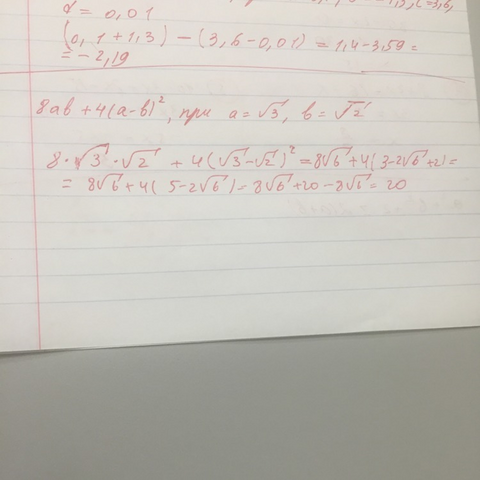 = 1,3, c=3,6,
d = 0,01
(0,1+1,3) − (3,6−0,01) = 1,4−3,59=
= −2,19
8ab + 4(a−b)², при a = √3, b = √2
8·√3·√2 + 4(√3−√2)² = 8√6 + 4(3−2√6+2)=
= 8√6+4(5−2√6)=8√6+20−8√6=20